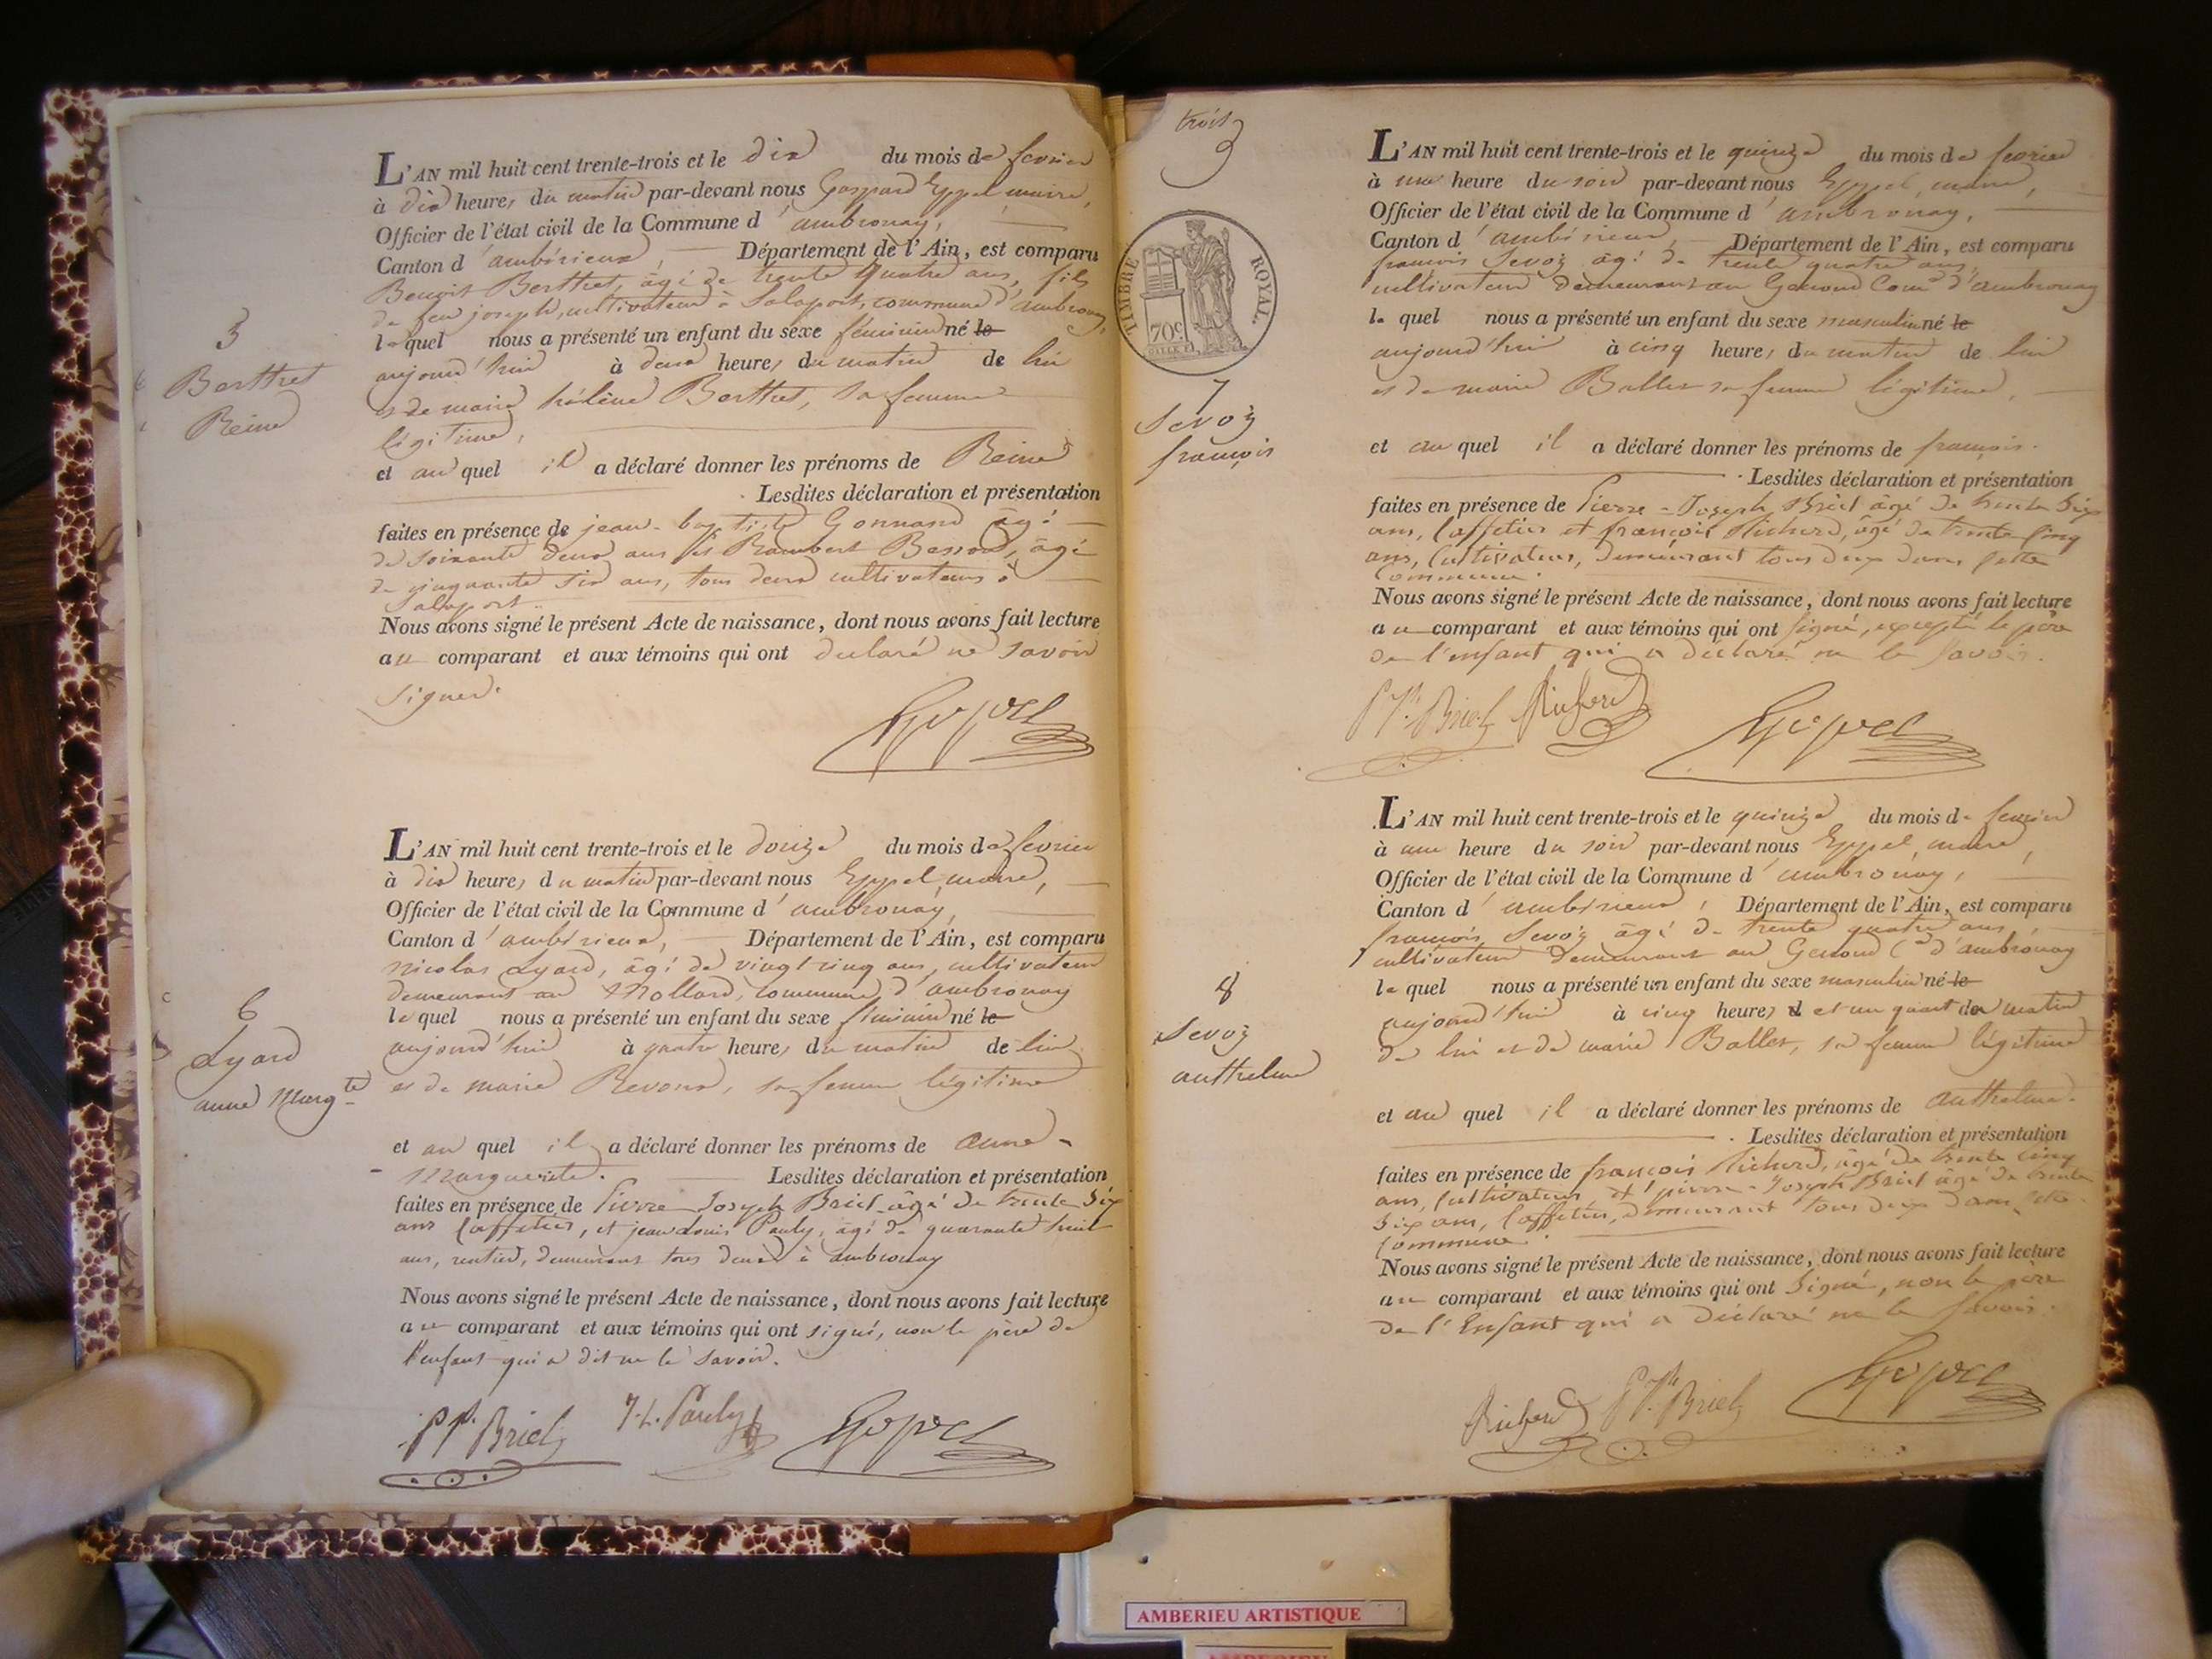 L'AN mil huit cent trente-trois et le dix du mois de fevrier
à dix heures du matin par-devant nous Gaspard Eppel maire,
Officier de l'état civil de la Commune d'ambronay,
Canton d'ambérieux, Département de l'Ain, est comparu
Benoit Berthet, âgé de trente quatre ans, fils
de feu joseph, cultivateur à Salaport, commune d'ambronay,
lequel nous a présenté un enfant du sexe féminin né le
aujourd'hui à deux heures du matin de lui
et de marie hélène Berthet, sa femme
légitime,
et au quel il a déclaré donner les prénoms de Reine
Lesdites déclaration et présentation
faites en présence de jean-baptiste Gonnand âgé
de soixante deux ans et Rambert Besson, âgé
de cinquante six ans, tous deux cultivateurs à
Salaport
Nous avons signé le présent Acte de naissance, dont nous avons fait lecture
au comparant et aux témoins qui ont déclaré ne savoir
signer.
5
Berthet
Reine
L'AN mil huit cent trente-trois et le douze du mois de fevrier
à dix heures du matin par-devant nous Eppel, maire,
Officier de l'état civil de la Commune d'ambronay,
Canton d'ambérieux, Département de l'Ain, est comparu
nicolas Lyard, âgé de vingt cinq ans, cultivateur
demeurant au Mollard, commune d'ambronay
lequel nous a présenté un enfant du sexe féminin né le
aujourd'hui à quatre heures du matin de lui
et de marie Revoux, sa femme légitime
et au quel il a déclaré donner les prénoms de anne-
marguerite. Lesdites déclaration et présentation
faites en présence de Pierre Joseph Briel âgé de trente six
ans Caffetier, et jean Louis Pauly, âgé de quarante huit
ans, rentier, demeurant tous deux à ambronay
Nous avons signé le présent Acte de naissance, dont nous avons fait lecture
au comparant et aux témoins qui ont signé, non le père de
l'enfant qui a dit ne le savoir.
PJ. Briel J. L. Pauly Eppel
6
Lyard
anne Margte
trois
3
TIMBRE ROYAL.
70c.
7
Sevoz
françois
L'AN mil huit cent trente-trois et le quinze du mois de fevrier
à une heure du soir par-devant nous Eppel, maire,
Officier de l'état civil de la Commune d'ambronay,
Canton d'ambérieux, Département de l'Ain, est comparu
françois Sevoz âgé de trente quatre ans,
cultivateur demeurant au Genoud Comne d'ambronay
lequel nous a présenté un enfant du sexe masculin né le
aujourd'hui à cinq heures du matin de lui
et de marie Ballet sa femme légitime,
et au quel il a déclaré donner les prénoms de françois.
Lesdites déclaration et présentation
faites en présence de Pierre-Joseph Briel âgé de trente Six
ans, Caffetier et françois Richerd, âgé de trente Cinq
ans, Cultivateur, demeurant tous deux dans Cette
Commune.
Nous avons signé le présent Acte de naissance, dont nous avons fait lecture
au comparant et aux témoins qui ont signé, excepté le père
de l'enfant qui a déclaré ne le Savoir.
PJh. Briel Richerd Eppel
8
Sevoz
anthelme
L'AN mil huit cent trente-trois et le quinze du mois de fevrier
à une heure du soir par-devant nous Eppel, maire,
Officier de l'état civil de la Commune d'ambronay,
Canton d'ambérieux, Département de l'Ain, est comparu
françois Sevoz âgé de trente quatre ans,
cultivateur demeurant au Genoud Cne d'ambronay
lequel nous a présenté un enfant du sexe masculin né le
aujourd'hui à cinq heures et un quart du matin
de lui et de marie Ballet, sa femme légitime
et au quel il a déclaré donner les prénoms de anthelme.
Lesdites déclaration et présentation
faites en présence de françois Richerd, âgé de trente cinq
ans, Cultivateur, et pierre-Joseph Briel âgé de trente
Six ans, Caffetier, demeurant tous deux dans Cette
Commune.
Nous avons signé le présent Acte de naissance, dont nous avons fait lecture
au comparant et aux témoins qui ont Signé, non le père
de l'Enfant qui a déclaré ne le Savoir.
Richerd PJh. Briel Eppel
AMBERIEU ARTISTIQUE